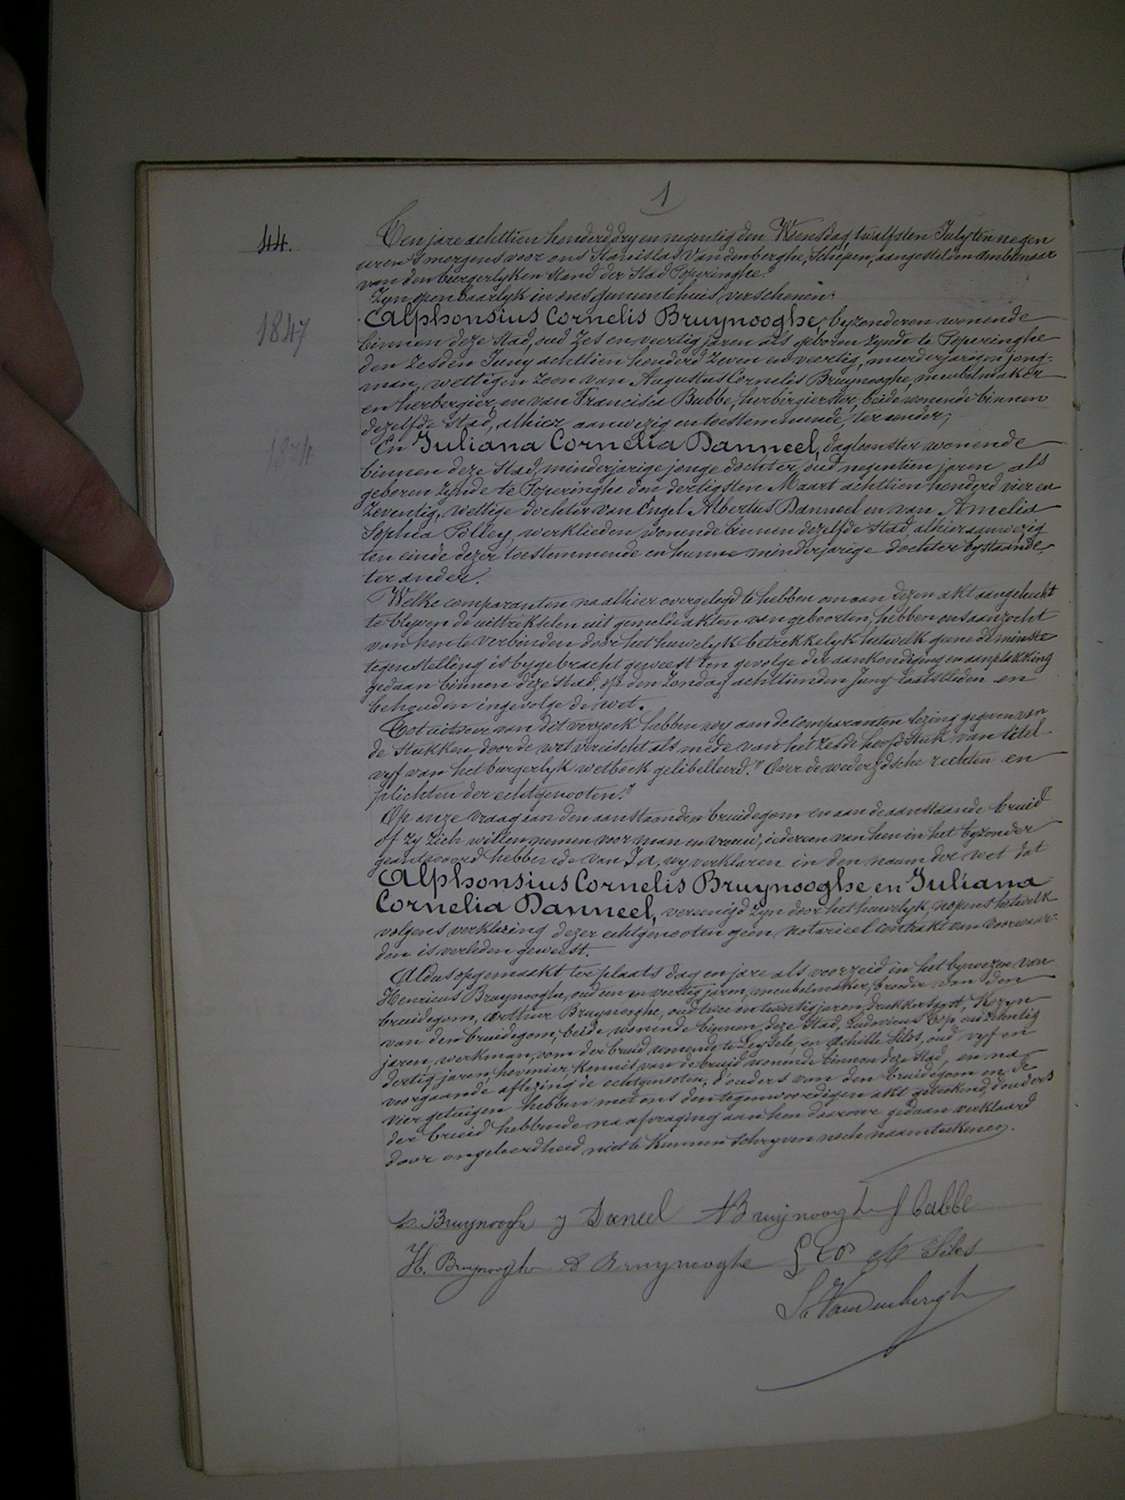 1
44.
Ten jare achttien honderd dry en negentig den Woensdag, twalfsten July ten negen
uren 's morgens voor ons Stanislas Vandenberghe, Schepen, aangestelden ambtenaar
van den burgerlyken stand der Stad Poperinghe.
Zyn openbaarlyk in ons gemeentehuis verschenen:
1847
Alphonsius Cornelis Bruynooghe, byzonderen wonende
binnen deze Stad, oud zes en veertig jaren als geboren zynde te Poperinghe
den zesden Juny achttien honderd zeven en veertig, meerderjarigen jong-
man, wettigen zoon van Augustus Cornelis Bruynooghe, meubelmaker
en herbergier, en van Francisca Babbe, herbergierster, beide wonende binnen
dezelfde Stad, alhier aanwezig en toestemmende, ter ander;
1874
En Juliana Cornelia Danneel, dagloonster wonende
binnen deze Stad, minderjarige jonge dochter, oud negentien jaren als
geboren zynde te Poperinghe den dertigsten Maart achttien honderd vier en
zeventig, wettige dochter van Engel Albertus Danneel en van Amelia
Sophia Pelley, werklieden wonende binnen dezelfde Stad, alhier aanwezig
ten einde dezer toestemmende en hunne minderjarige dochter bystaande,
ter ander.
Welke comparanten na alhier overgelegd te hebben om aan dezen akt aangehecht
te blyven de uittreksels uit gemelde akten van geboorten, hebben ons aanzocht
van hen te verbinden door het huwelyk betrekkelyk hetwelk geene de minste
tegenstelling is bygebracht geweest ten gevolge der aankondiging en aanplakking
gedaan binnen deze Stad, op den Zondag achttienden Juny laatstleden en
behouden ingevolge de wet.
Tot uitvoer van dit verzoek hebben wy aan de comparanten lezing gegeven van
de Stukken door de wet vereischt als mede van het zesde hoofdstuk van titel
vyf van het burgerlyk wetboek gelibelleerd: "Over de wederzydsche rechten en
plichten der echtgenooten."
Op onze vraag aan den aanstaanden bruidegom en aan de aanstaande bruid
of zy zich willen nemen voor man en vrouw, iedereen van hen in het byzonder
geantwoord hebbende van Ja, wy verklaren in den naam der wet dat
Alphonsius Cornelis Bruynooghe en Juliana
Cornelia Danneel, vereenigd zyn door het huwelyk, nopens hetwelk
volgens verklaring dezer echtgenooten geen notarieel contrakt van voorwaar-
den is verleden geweest.
Aldus opgemaakt ter plaats dag en jare als voorzeid in het bywezen van
Henricus Bruynooghe, oud een en veertig jaren, meubelmaker, broeder van den
bruidegom, Arthur Bruynooghe, oud twee en twintig jaren, drukkersgast, Kozyn
van den bruidegom, beide wonende binnen deze Stad, Ludovicus Cop, oud zeventig
jaren, werkman, oom der bruid wonende te Leysele, en Achille Silos, oud vyf en
dertig jaren hovenier, kennis van de bruid wonende binnen deze Stad, en na
voorgaande aflezing de echtgenooten, d'ouders van den bruidegom en de
vier getuigen hebben met ons den tegenwoordigen akt geteekend, d'ouders
der bruid hebbende na afvraging aan hen daarover gedaan verklaard
door ongeleerdheid niet te kunnen schryven noch naamteekenen.
Bruynooghe J Daneel A Bruijnooghe F Babbe
H. Bruynooghe A Bruynooghe L Cop A Silos
S. Vandenberghe